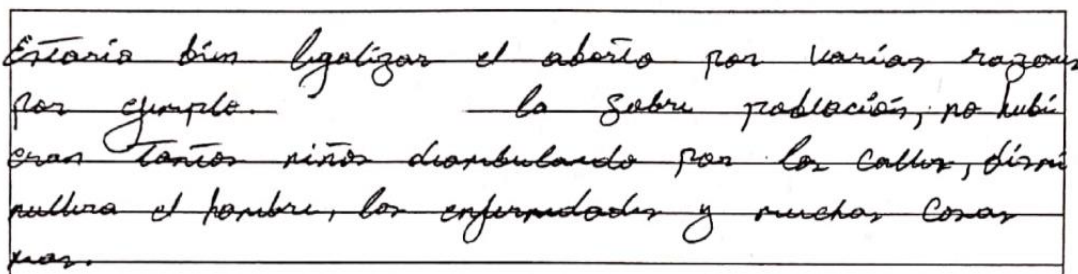 Estaria bien legalizar el aborto por varias razones
por ejemplo. la sobre población, no hubi
eran tantos niños deambulando por las calles, dismi
nullera el hambre, las enfermedades y muchas cosas
mas.